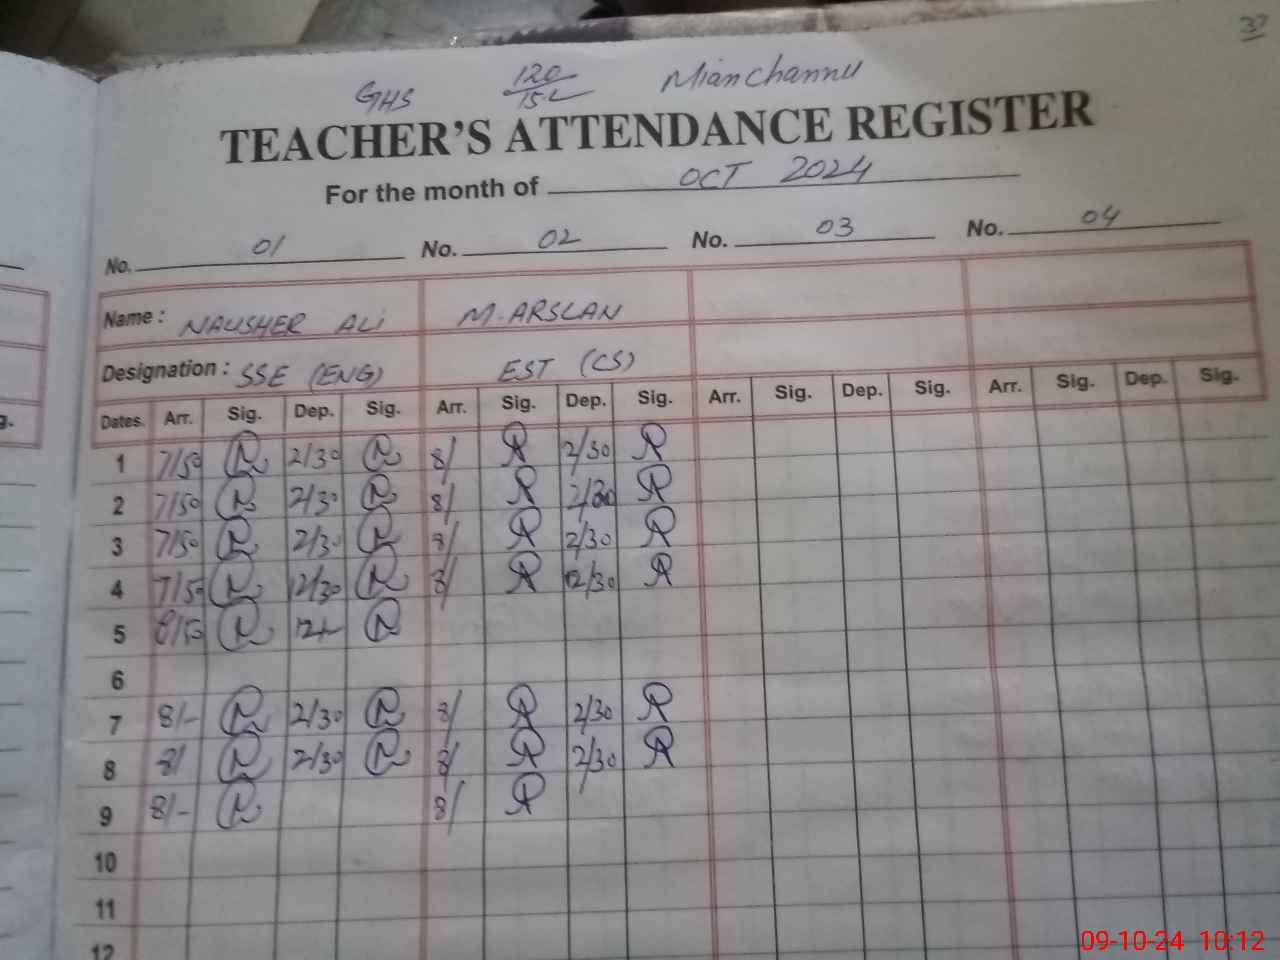 37
GHS 120/15-L Mianchannu
TEACHER'S ATTENDANCE REGISTER
For the month of OCT 2024
No. 01 No. 02 No. 03 No. 04
Name : NAUSHER ALi M. ARSLAN
Designation : SSE (ENG) EST (CS)
Dates. Arr. Sig. Dep. Sig. Arr. Sig. Dep. Sig. Arr. Sig. Dep. Sig. Arr. Sig. Dep. Sig.
1 7/50 2/30 8/ 2/30
2 7/50 2/30 8/ 2/30
3 7/50 2/30 8/ 2/30
4 7/50 12/30 8/ 12/30
5 8/50
6
7 8/- 2/30 8/ 2/30
8 8/ 2/30 8/ 2/30
9 8/- 8/
10
11
12
g.
09-10-24 10:12